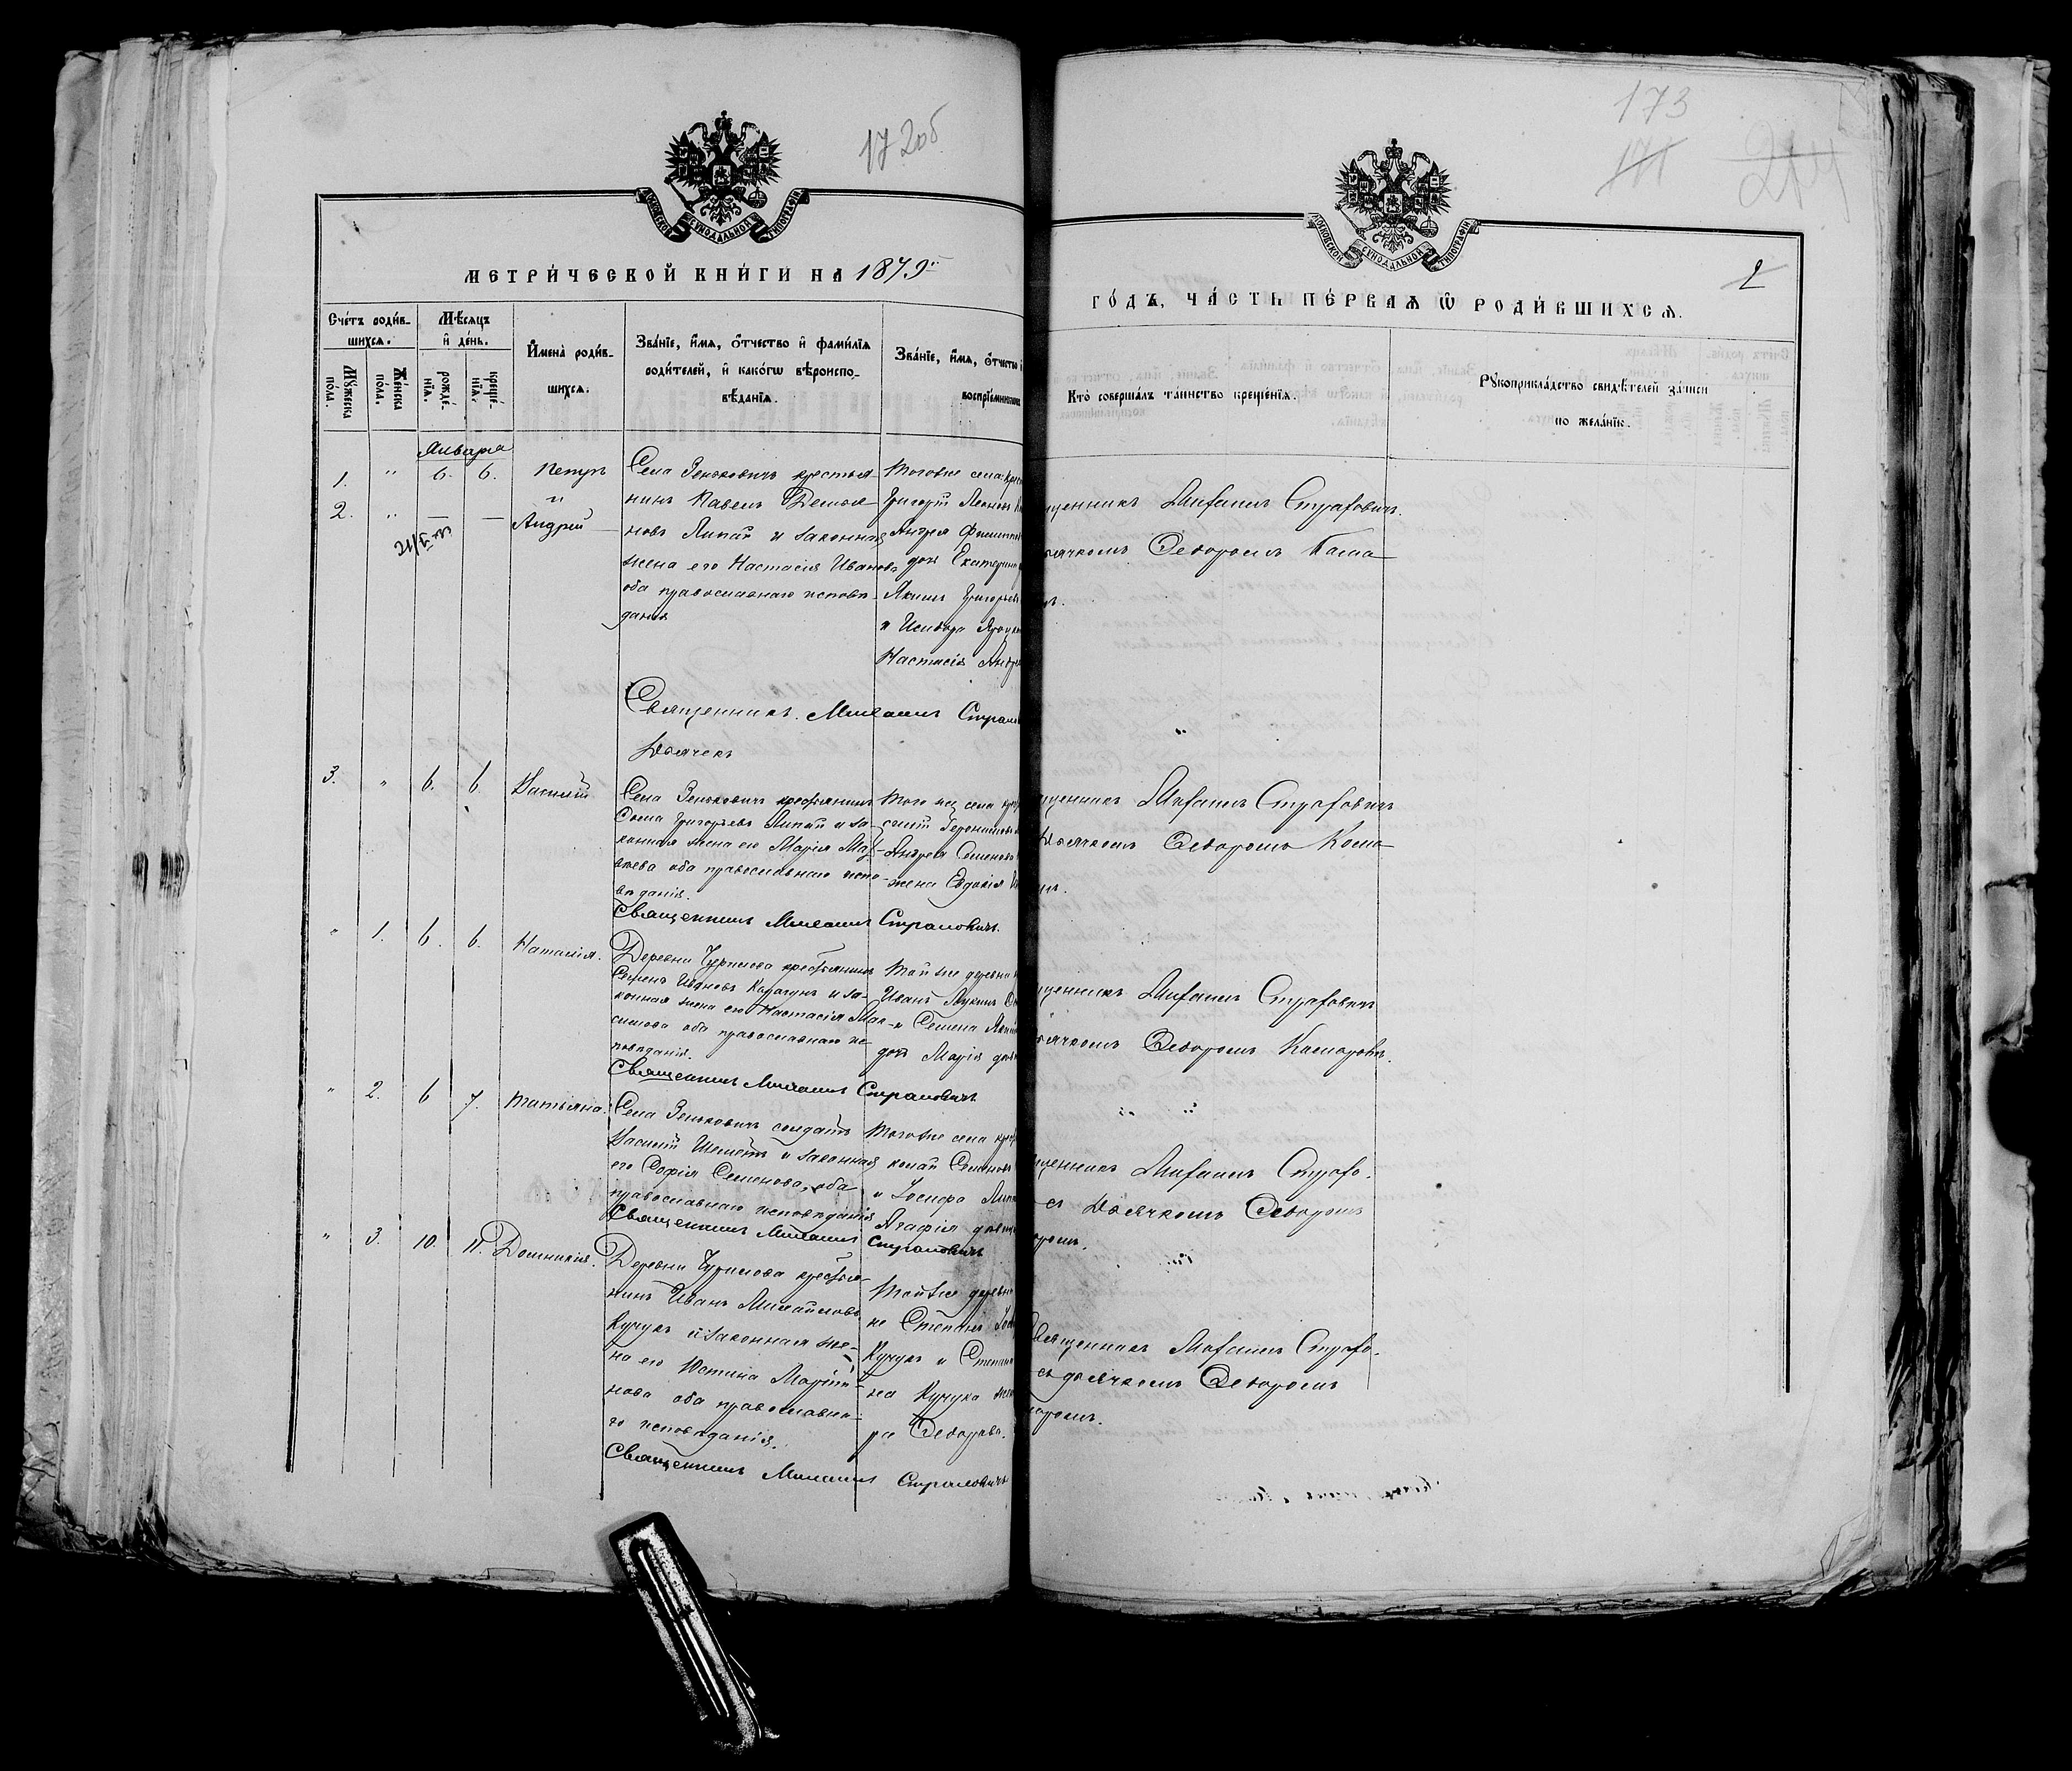 172об
173
171
214
МОСКОВСКОЙ СѴНОДАЛЬНОЙ ТИПОГРАФІИ
МОСКОВСКОЙ СѴНОДАЛЬНОЙ ТИПОГРАФІИ
МЕТРИ́ЧЕСКОЙ КНИ́ГИ НА 1879й
2
ГО́ДЪ, ЧА́СТЬ ПЕ́РВАѦ Ѿ РОДИ́ВШИХСѦ.
Сче́тъ роди́в-
шихсѧ.
Мꙋ́жеска
по́ла.
Же́нска
по́ла.
Мѣ́сѧцъ
и҆ де́нь.
рожде́-
нїѧ.
креще́-
нїѧ.
И҆мена̀ роди́в-
шихсѧ.
Зва́нїе, и҆́мѧ, ѻ҆́тчество и҆ фами́лїѧ
роди́телей, и҆ како́гѡ вѣроиспо-
вѣ́данїѧ.
Зва́нїе, и҆́мѧ, ѻ҆́тчество и҆
воспрїе́мниковъ
Кто̀ соверша́лъ та́инство креще́нїѧ.
Рꙋкоприкла́дство свидѣ́телей за́писи
по жела́нїю.
Января
1. " 6. 6. Петръ
и
2. " — — Андрей
Села Зеньковичъ крестья-
нинъ Павелъ Демья-
новъ Липай и законная
жена его Настасія Иванова
оба православнаго исповѣ-
данія
Тогоже села кре
Григорій Леоновъ
Андрея Филипп
дочь Екатерина
Якимъ Григорьевъ
и Исидора
Настасія Андре
щенникъ Михаилъ Страхович.
ьячкомъ Ѳеодоромъ Кома-
Священникъ Михаилъ Страхо
Дьячекъ
3. " 6. 6 Василій
Села Зеньковичъ крестьянинъ
Сома Григорьевъ Липай и за-
конная жена его Марія Мат-
вѣева оба православнаго испо-
вѣданія.
Того же села кре
силій Геронимовъ
Андрея Семенова
жена Евдокія
щенникъ Михаилъ Страховичъ
дьячкомъ Ѳеодоромъ Кома-
Священникъ Михаилъ Страховичъ
" 1. 6. 6. Наталія.
Деревни Чурилова крестьянинъ
Семенъ Ивановъ Карачунъ и за-
конная жена его Настасія Мак-
симова оба православнаго ис-
повѣданія.
Той же деревни
Иванъ Лукинъ
и Семена
дочь Марія дѣв
щенникъ Михаилъ Страховичъ
ьячкомъ Ѳеодоромъ Комаров.
Священникъ Михаилъ Страховичъ
" 2. 6 7. Татьяна.
Села Зеньковичъ солдатъ
Василій Шеметъ и законная
его Софія Семенова, оба
православнаго исповѣданія
Тогоже села кре
колай Семеновъ
и Іосифа Лип
Агафія дѣвица
щенникъ Михаилъ Страхо-
съ дьячкомъ Ѳеодоромъ
оромъ.
Священникъ Михаилъ Страховичъ
" 3. 10. 11. Домникія.
Деревни Чурилова крестья-
нинъ Иванъ Михайловъ
Кучукъ и законная же-
на его Юстина Марти-
нова оба православна-
го исповѣданія.
Тойже деревни
не Степанъ Іос
Кучукъ и Степан
на Кучука жен
ра Ѳеодорова.
Священникъ Михаилъ Страхо-
съ дьячкомъ Ѳеодоромъ
аромъ.
Священникъ Михаилъ Страховичъ